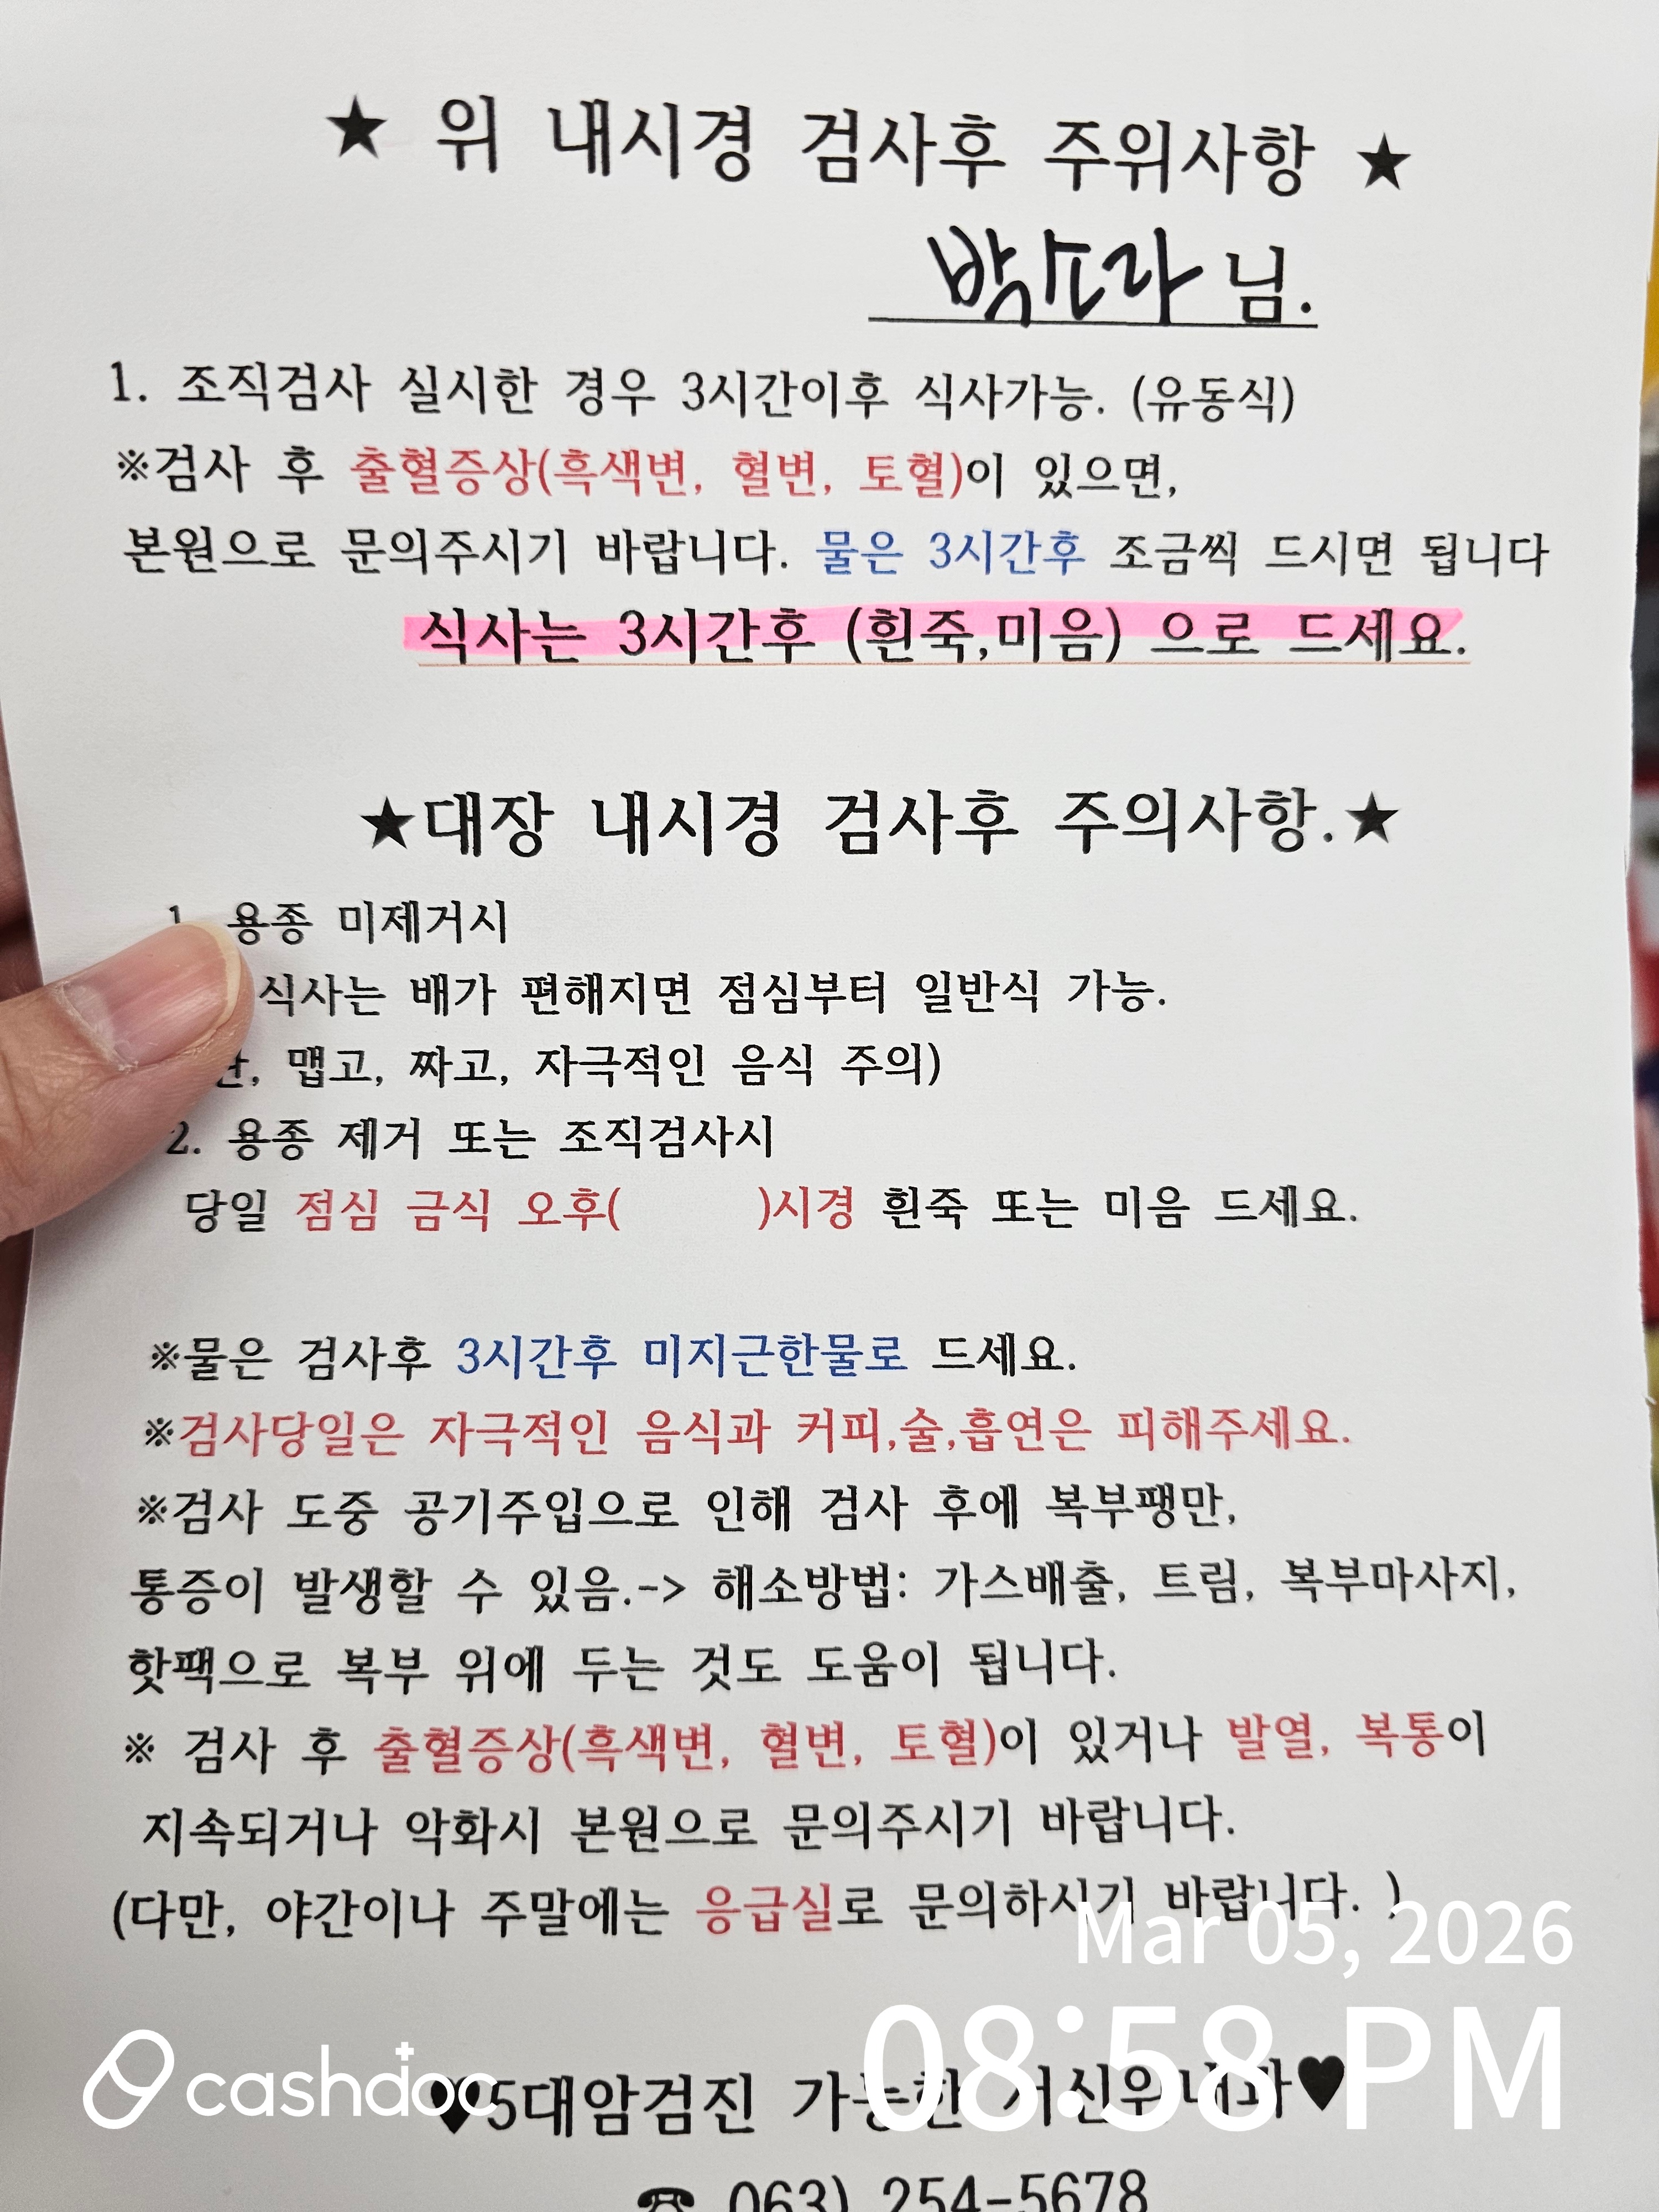 ★ 위 내시경 검사후 주위사항 ★
박소라 님.
1. 조직검사 실시한 경우 3시간이후 식사가능. (유동식)
※검사 후 출혈증상(흑색변, 혈변, 토혈)이 있으면,
본원으로 문의주시기 바랍니다. 물은 3시간후 조금씩 드시면 됩니다
식사는 3시간후 (흰죽,미음) 으로 드세요.
★대장 내시경 검사후 주의사항.★
1. 용종 미제거시
식사는 배가 편해지면 점심부터 일반식 가능.
맵고, 짜고, 자극적인 음식 주의)
2. 용종 제거 또는 조직검사시
당일 점심 금식 오후( )시경 흰죽 또는 미음 드세요.
※물은 검사후 3시간후 미지근한물로 드세요.
※검사당일은 자극적인 음식과 커피,술,흡연은 피해주세요.
※검사 도중 공기주입으로 인해 검사 후에 복부팽만,
통증이 발생할 수 있음.-> 해소방법: 가스배출, 트림, 복부마사지,
핫팩으로 복부 위에 두는 것도 도움이 됩니다.
※ 검사 후 출혈증상(흑색변, 혈변, 토혈)이 있거나 발열, 복통이
지속되거나 악화시 본원으로 문의주시기 바랍니다.
(다만, 야간이나 주말에는 응급실로 문의하시기 바랍니다. )
Mar 05, 2026
08:58 PM
cashdoc
♥5대암검진 가능한 ♥
☎ 063) 254-5678